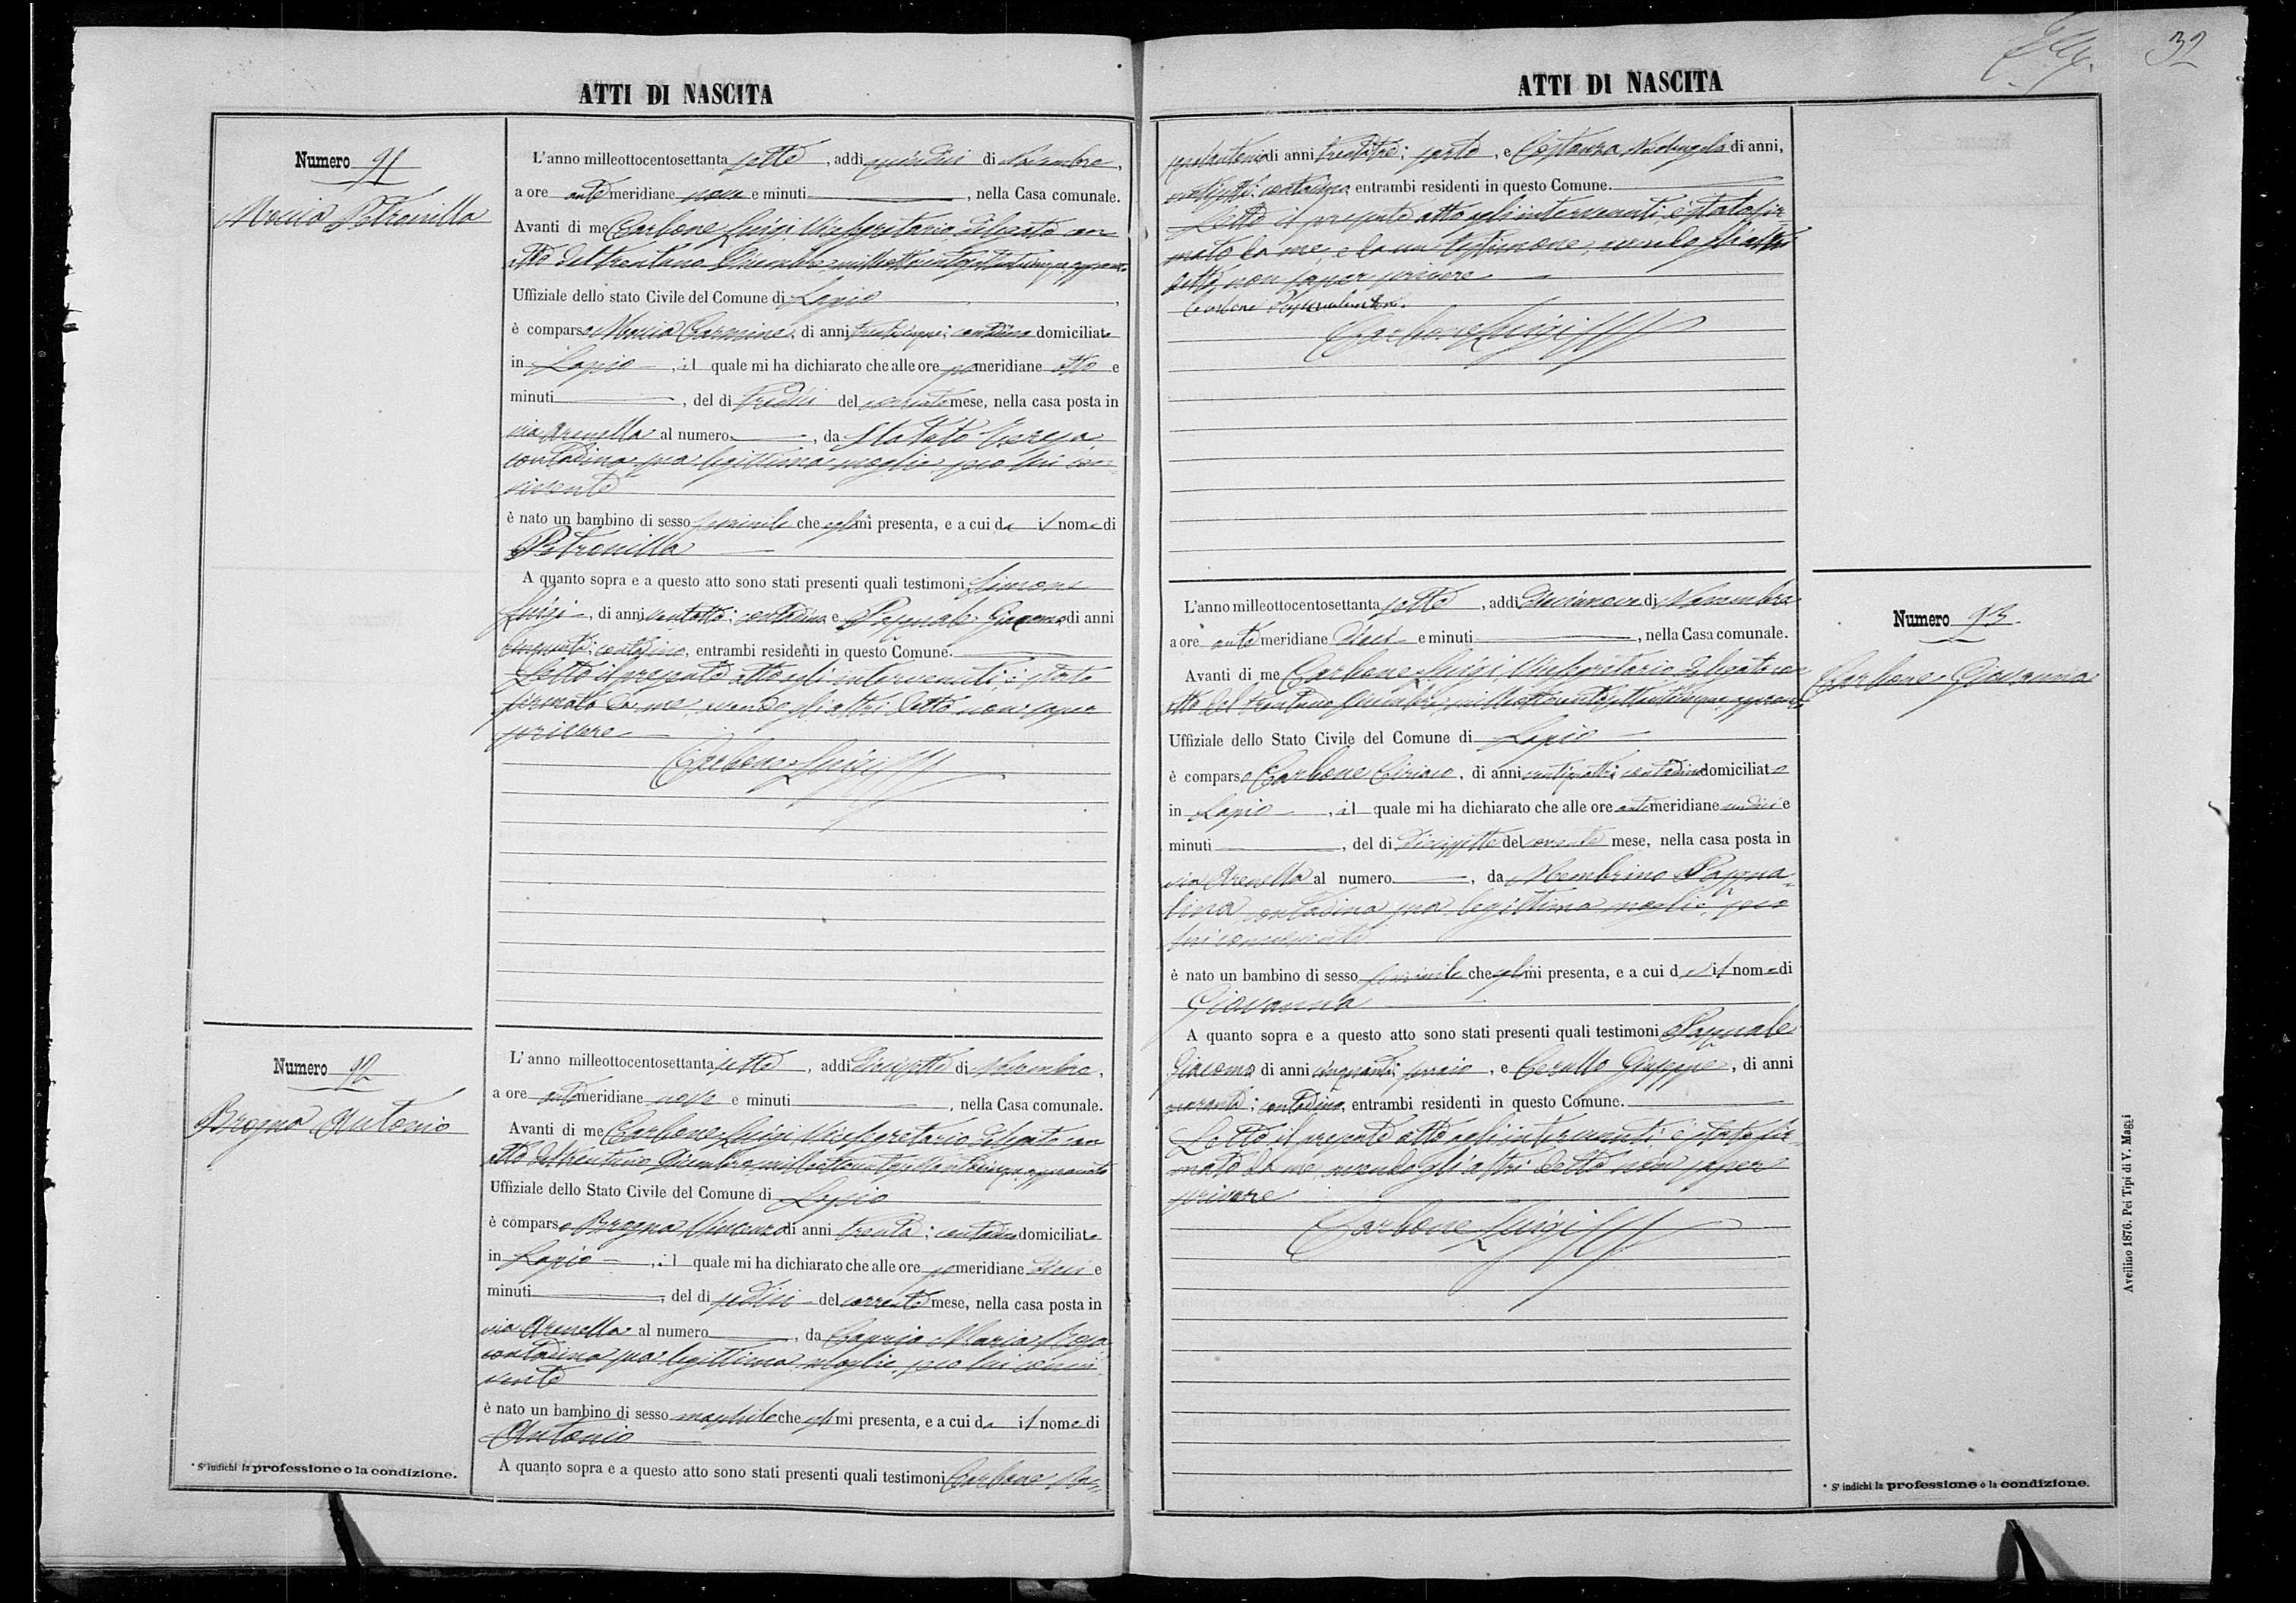 ATTI DI NASCITA
Numero 91
Moccia Petronilla
L'anno milleottocentosettanta sette, addi quindici di Novembre,
a ore antemeridiane nove e minuti, nella Casa comunale.
Avanti di me Carbone Luigi Vicesegretario delegato con
atto del trentuno Dicembre milleottocentosettantacinque approvato
Uffiziale dello stato Civile del Comune di Lapio,
è comparso Moccia Carmine, di anni trentacinque; contadino domiciliato
in Lapio, il quale mi ha dichiarato che alle ore pomeridiane otto e
minuti, del dì tredici del corrente mese, nella casa posta in
via Arenella al numero, da Statuto Teresa
contadina sua legittima moglie, seco lui con-
vivente
è nato un bambino di sesso femminile che egli mi presenta, e a cui da il nome di
Petronilla
A quanto sopra e a questo atto sono stati presenti quali testimoni Simone
Luigi, di anni ventotto; contadino e Pasquale Giacomo di anni
cinquanta; contadino, entrambi residenti in questo Comune.
Letto il presente atto agli intervenuti, è stato
firmato da me, avendo gli altri detto non saper
scrivere
Carbone Luigi
Numero 92
Brogna Antonio
L'anno milleottocentosettanta sette, addi diciassette di Novembre,
a ore antemeridiane nove e minuti, nella Casa comunale.
Avanti di me Carbone Luigi Vicesegretario delegato con
atto del trentuno Dicembre milleottocentosettantacinque approvato
Uffiziale dello Stato Civile del Comune di Lapio
è comparso Brogna Vincenzo di anni trenta; contadino domiciliato
in Lapio, il quale mi ha dichiarato che alle ore pomeridiane dieci e
minuti, del dì sedici del corrente mese, nella casa posta in
via Arenella al numero, da Caprio Maria Rosa
contadina sua legittima moglie, seco lui convi-
vente
è nato un bambino di sesso maschile che egli mi presenta, e a cui da il nome di
Antonio
A quanto sopra e a questo atto sono stati presenti quali testimoni Carbone
* S'indichi la professione o la condizione.
32
ATTI DI NASCITA
di anni trentatre; sarto, e Costanza Nicolangelo di anni,
contadino, entrambi residenti in questo Comune.
Letto il presente atto agli intervenuti, è stato fir-
mato da me, e da un testimone, avendo gli altri
detto non saper scrivere
Carbone
Carbone Luigi
Numero 93.
Carbone Giovanna
L'anno milleottocentosettanta sette, addi diecinnove di Novembre
a ore antemeridiane dieci e minuti, nella Casa comunale.
Avanti di me Carbone Luigi Vicesegretario delegato con
atto del trentuno Dicembre milleottocentosettantacinque approvato
Uffiziale dello Stato Civile del Comune di Lapio
è comparso Carbone Ciriaco, di anni ventiquattro; contadino domiciliato
in Lapio, il quale mi ha dichiarato che alle ore antemeridiane undici e
minuti, del dì diciassette del corrente mese, nella casa posta in
via Arenella al numero, da Membrino Pasqua-
lina contadina sua legittima moglie, seco
lui convivente
è nato un bambino di sesso femminile che egli mi presenta, e a cui da il nome di
Giovanna
A quanto sopra e a questo atto sono stati presenti quali testimoni Pasquale
Giacomo di anni cinquanta;, e Cerullo Giuseppe, di anni
quaranta; contadino, entrambi residenti in questo Comune.
Letto il presente atto agli intervenuti è stato fir-
mato da me, avendo gli altri detto non saper
scrivere
Carbone Luigi
* S'indichi la professione o la condizione.
Avellino 1876. Pei Tipi di V. Magi